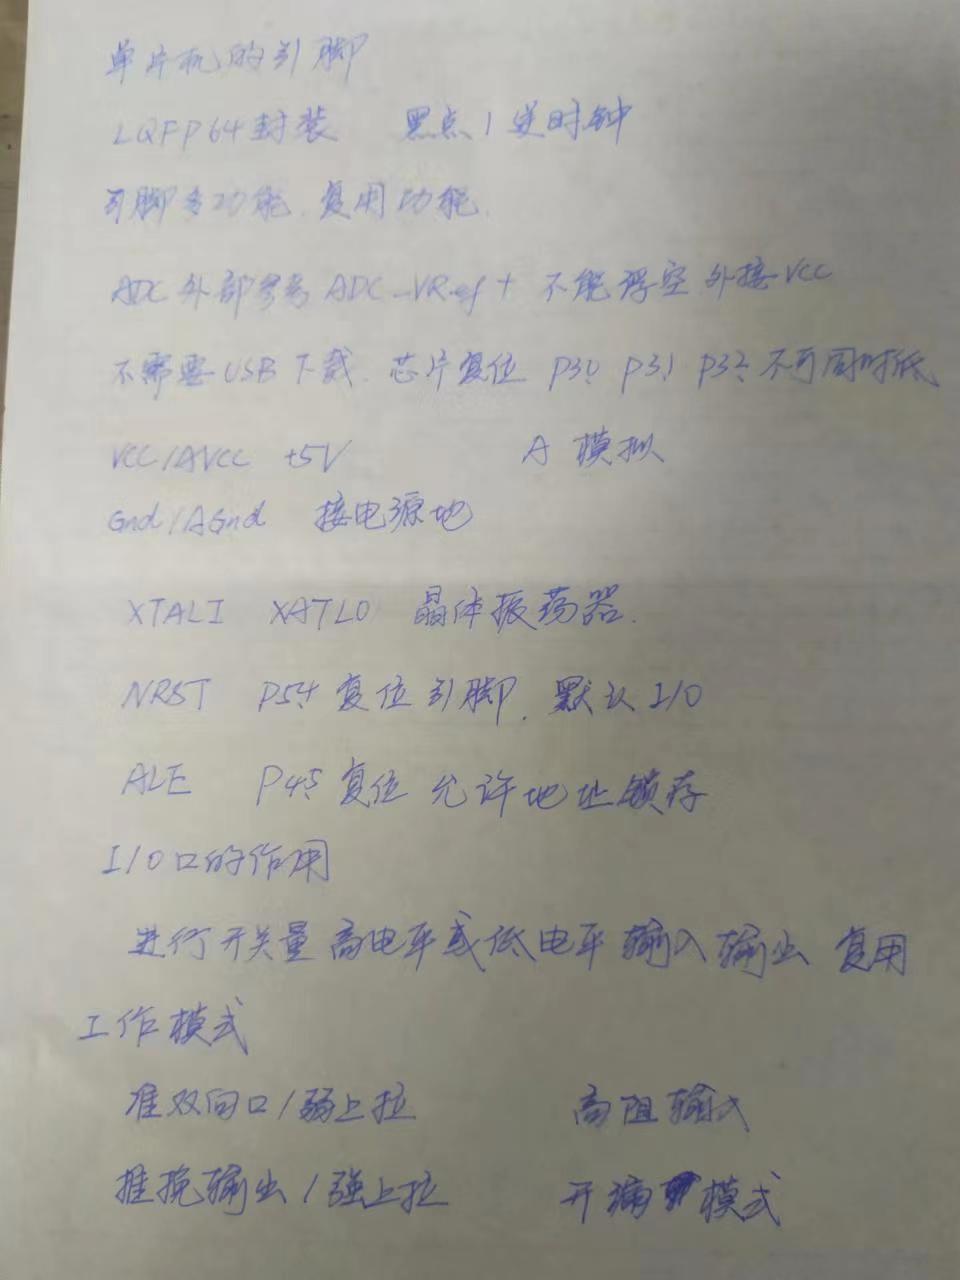 单片机的引脚
LQFP64封装 黑点1逆时钟
引脚多功能.复用功能.
ADC外部参考ADC_VRef+ 不能浮空 外接VCC
不需要USB下载.芯片复位 P3.0 P3.1 P3.2 不可同时低
VCC/AVCC +5V A 模拟
Gnd/AGnd 接电源地
XTALI XATLO 晶体振荡器.
NRST P5.4 复位引脚.默认I/O
ALE P4.5 复位 允许地址锁存
I/O口的作用
进行开关量高电平或低电平 输入输出 复用
工作模式
准双向口/弱上拉 高阻输入
推挽输出/强上拉 开漏 模式